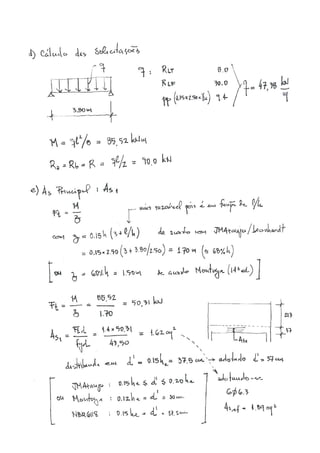 d) Cálculo das Solicitações
q
q : RLT 8.0
RLT 30.0
pp (0,15x2.50x25) 9.4
q = 47,38 kN/m
3.80m
M = ql²/8 = 85,52 kNm
Ra = Rb = R = ql/2 = 90,0 kN
e) As Principal : As,t
Ft = M/z → mais razoável pois é em função de l/h
com z = 0.15h (3 + l/h) de acordo com JMAraujo / Leonhardt
= 0.15x2.50 (3 + 3.80/2.50) = 1.70m (≈ 68%h)
ou z = 60%h = 1.50m de acordo Montoya (14ª ed.)
Ft = M/z = 85,52/1.70 = 50,31 kN
As,t = Ft.d/fyd = 1.4x50,31/43,50 = 1.62 cm²
distribuindo em d' = 0.15he = 37,5 cm → adotado d' = 37cm
213
37
As,t
JMAraujo : 0.15he ≤ d' ≤ 0.20he
ou Montoya : 0.12he = d' = 30cm
NBR6118 : 0.15he = d' = 37.5cm
adotando-se
6Ø6.3
As,ef = 1.89 cm²